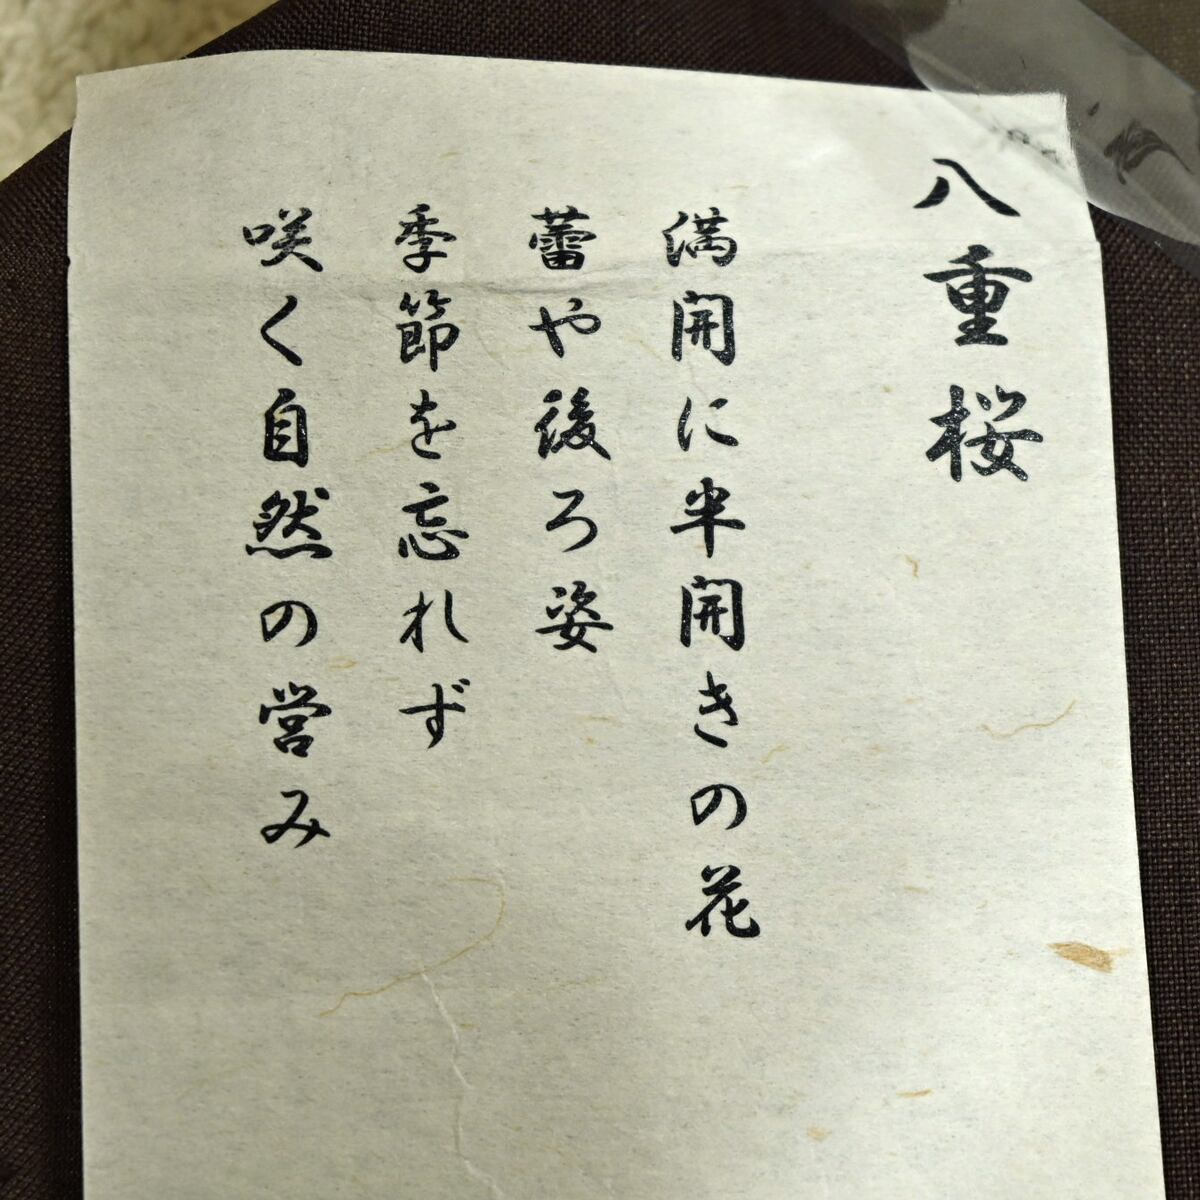 八重桜
満開に半開きの花
蕾や後ろ姿
季節を忘れず
咲く自然の営み